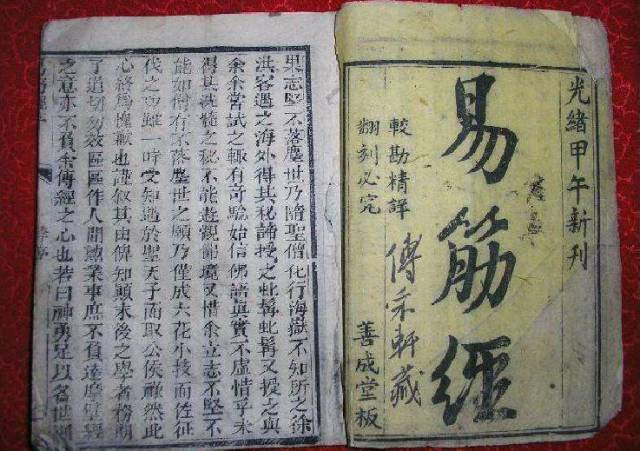 光緒甲午新刊
易筋經
較勘精詳
翻刻必究
軒藏
善成堂板
果志堅不落塵世乃隨聖僧化行海嶽不知所之徐
洪客遇之海外得其秘諦授之虬髯虬髯又授之與
余余嘗試之輒有奇驗始信佛語真實不虛惜乎未
得其洗髓之秘不能遊觀佛境又惜余立志不堅不
能如僧有不落塵世之願乃僅成六花小技而佐征
伐之功雖一時受知遇於聖天子而取公侯雖然此
心終為愧歉也謹敘其由俾知顛末後之學者務期
了道切勿效區區作人間勲業事庶不負達摩壁經
之意亦不負余傳經之心也若曰神勇足以名世